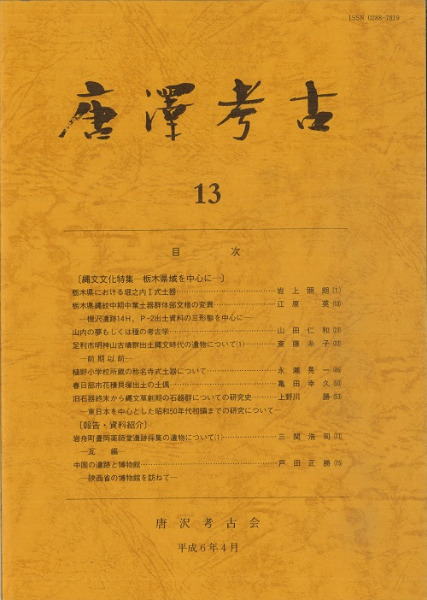 ISSN 0288-7819
唐澤考古
13
目 次
〔縄文文化特集―栃木県域を中心に―〕
栃木県における堀之内Ⅰ式土器……岩上照朗(1)
栃木県縄紋中期中葉土器群体部文様の変遷……江原 英
―檀沢遺跡14H, P-2出土資料の三形態を中心に―
山内の夢もしくは種の考古学……山田仁和
足利市明神山古墳群出土縄文時代の遺物について(1)……斎藤糸子
―前期以前―
樋野小学校所蔵の称名寺式土器について……永瀬晃一
春日部市花積貝塚出土の土偶……亀田幸久
旧石器終末から縄文草創期の石鏃群についての研究史……上野川 勝
―東日本を中心とした昭和50年代初頭までの研究について―
〔報告・資料紹介〕
岩舟町畳岡薬師堂遺跡採集の遺物について(1)……三関浩司
―瓦 編―
中国の遺跡と博物館……戸田正勝
―陝西省の博物館を訪ねて―
唐沢考古会
平成6年4月